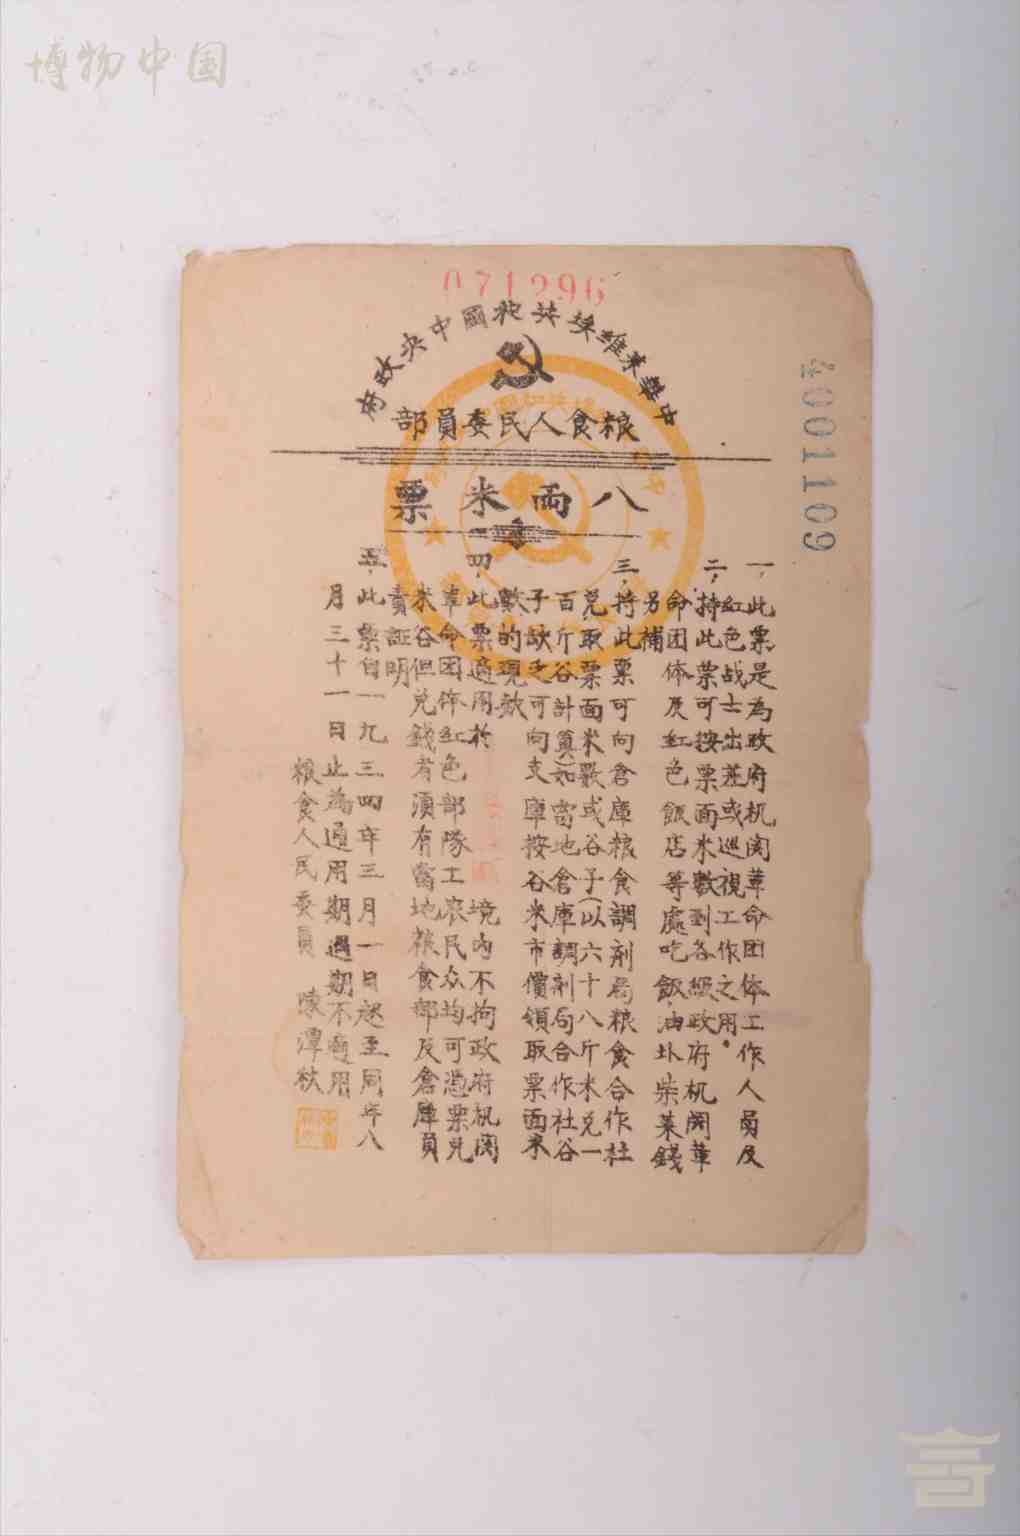 博物中国
071296
中華苏維埃共和國中央政府
粮食人民委員部
八両米票
4001109
一、此票是為政府机関革命团体工作人員及
紅色战士出差或巡視工作之用。
二、持此票可按票面米數到各級政府机関革
命团体及紅色飯店等處吃飯,油圤柴菜錢
另補
三、持此票可向倉庫粮食調剂局粮食合作社
兑取票面米數或谷子(以六十八斤米兑一
百斤谷計算)如當地倉庫調剂局合作社谷
子缺乏可向支庫按谷米市價領取票面米
數的現款
四、此票適用於 境內不拘政府机関
革命团体紅色部隊工农民众均可憑票兑
米谷但兑錢者須有當地粮食部及倉庫負
責証明
五、此票自一九三四年三月一日起至同年八
月三十一日止為通用期過期不適用
粮食人民委員 陳潭秋